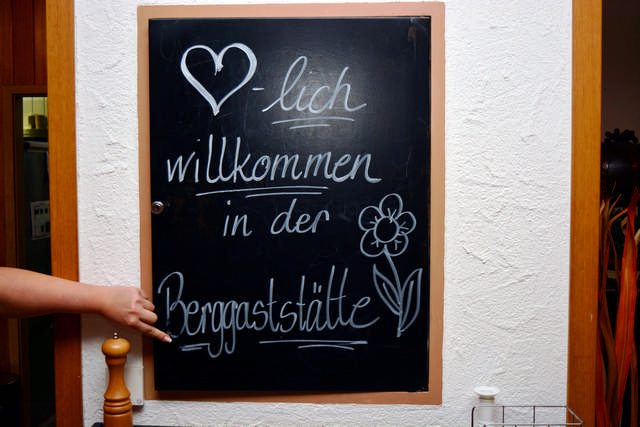 ♡-lich
willkommen
in der
Berggaststätte